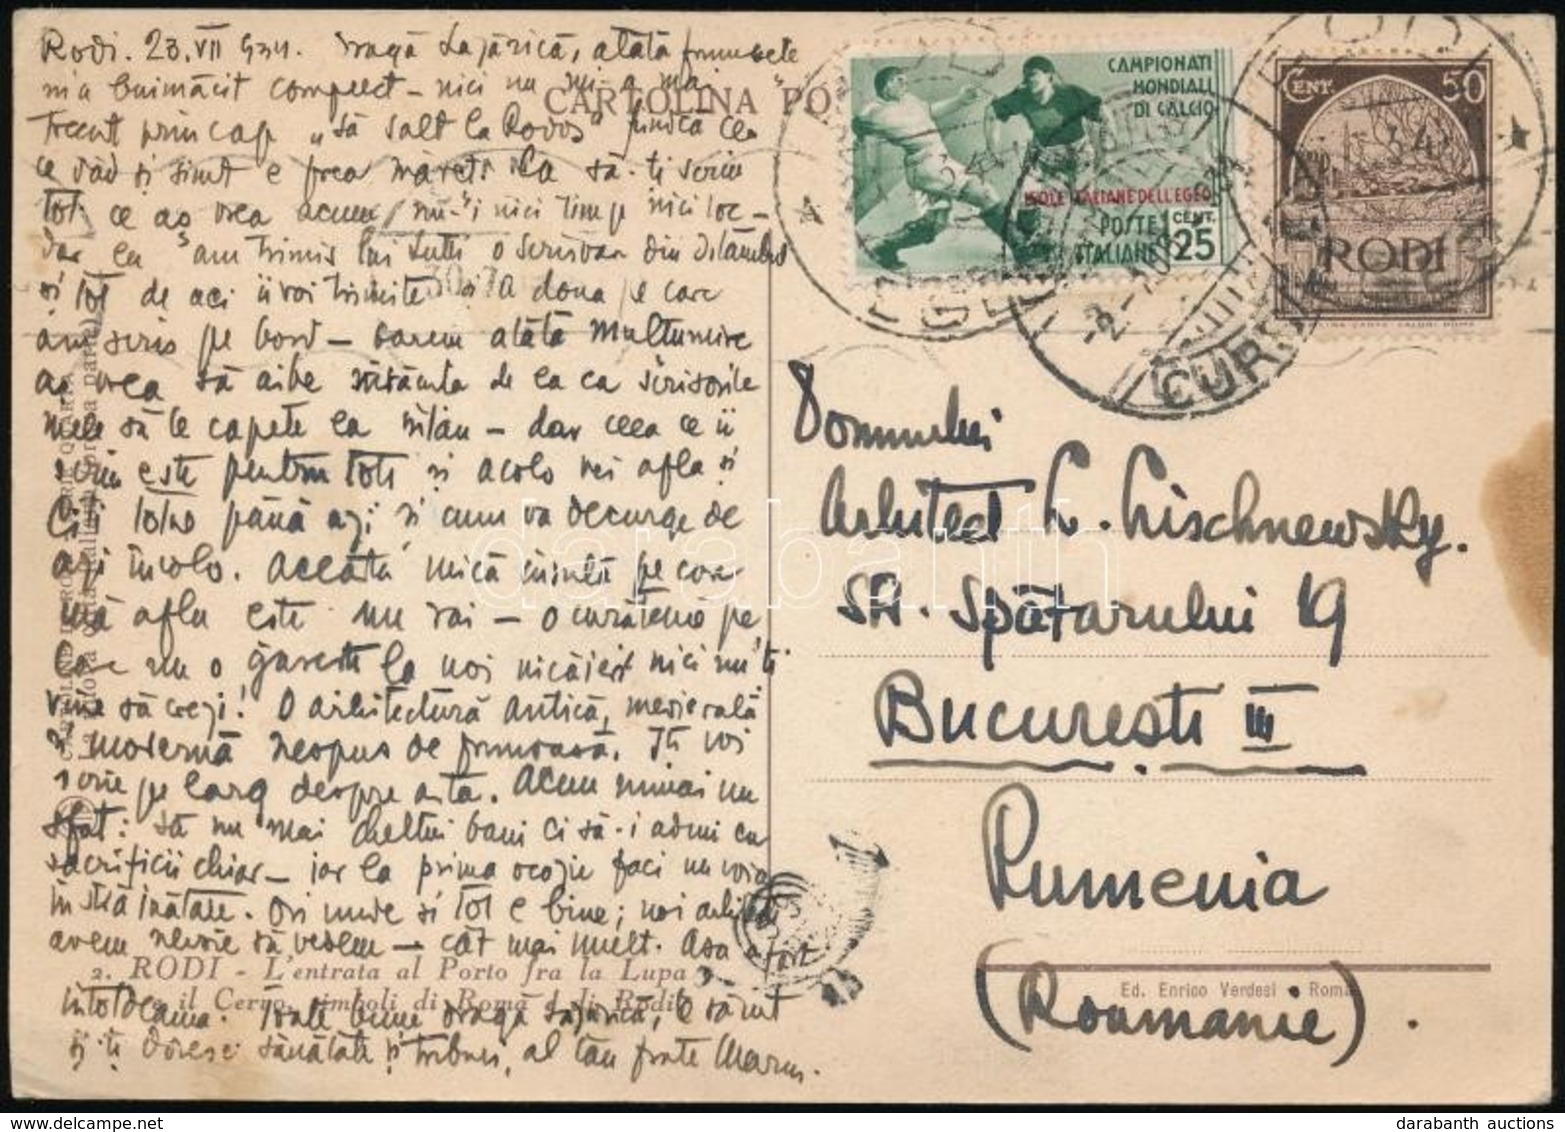 Rodi. 23.VII 934. Dragă Lazărică, atâta frumusețe
m'a buimăcit complect – nici nu mi-a mai
trecut prin cap „să salt la Rodos" fiindcă cea
ce văd și simt e prea măreț. Ca să-ți scriu
tot ce aș vrea acum nu-i nici timp nici loc –
dar ți-am trimis lui Lutti o scrisoare din
și tot de aci îi voi trimite și a doua pe care
am scris pe bord – barem atâta mulțumire
aș vrea să aibe de la ca scrisorile
mele să le capete ea întâiu – dar ceea ce îi
scriu este pentru toți și acolo vei afla și
citi totul până azi și cum va decurge de
azi încolo. Aceasta mică insulă pe care
mă aflu este un rai – o curățenie pe
care nu o găsești la noi nicăieri nici nu-ți
vine să crezi! O arhitectură antică, medievală
și modernă nespus de frumoasă. Iți voi
scrie pe larg despre asta. Acum numai un
sfat: să nu mai cheltui bani ci să-i aduni cu
sacrificii chiar – iar la prima ocazie faci un voiaj
în străinătate. Ori unde și tot e bine; noi arhitecții
avem nevoie să vedem – cât mai mult. Așa a fost
întotdeauna. Toate bune dragă Lazărică, te sărut
și-ți doresc sănătate și tribun, al tău frate Marin.
CARTOLINA PO
2. RODI - L'entrata al Porto fra la Lupa
e il Cervo, simboli di Roma e di Rodi
CAMPIONATI
MONDIALI
DI CALCIO
ISOLE ITALIANE DELL'EGEO
POSTE
ITALIANE
CENT.
25
CENT. 50
RODI
CURI
Domnului
Arhitect L. Lischnewsky.
Str. Spătarului 19
București III
Rumenia
(Roumanie).
Ed. Enrico Verdesi - Roma
darabanth
darabanth auctions